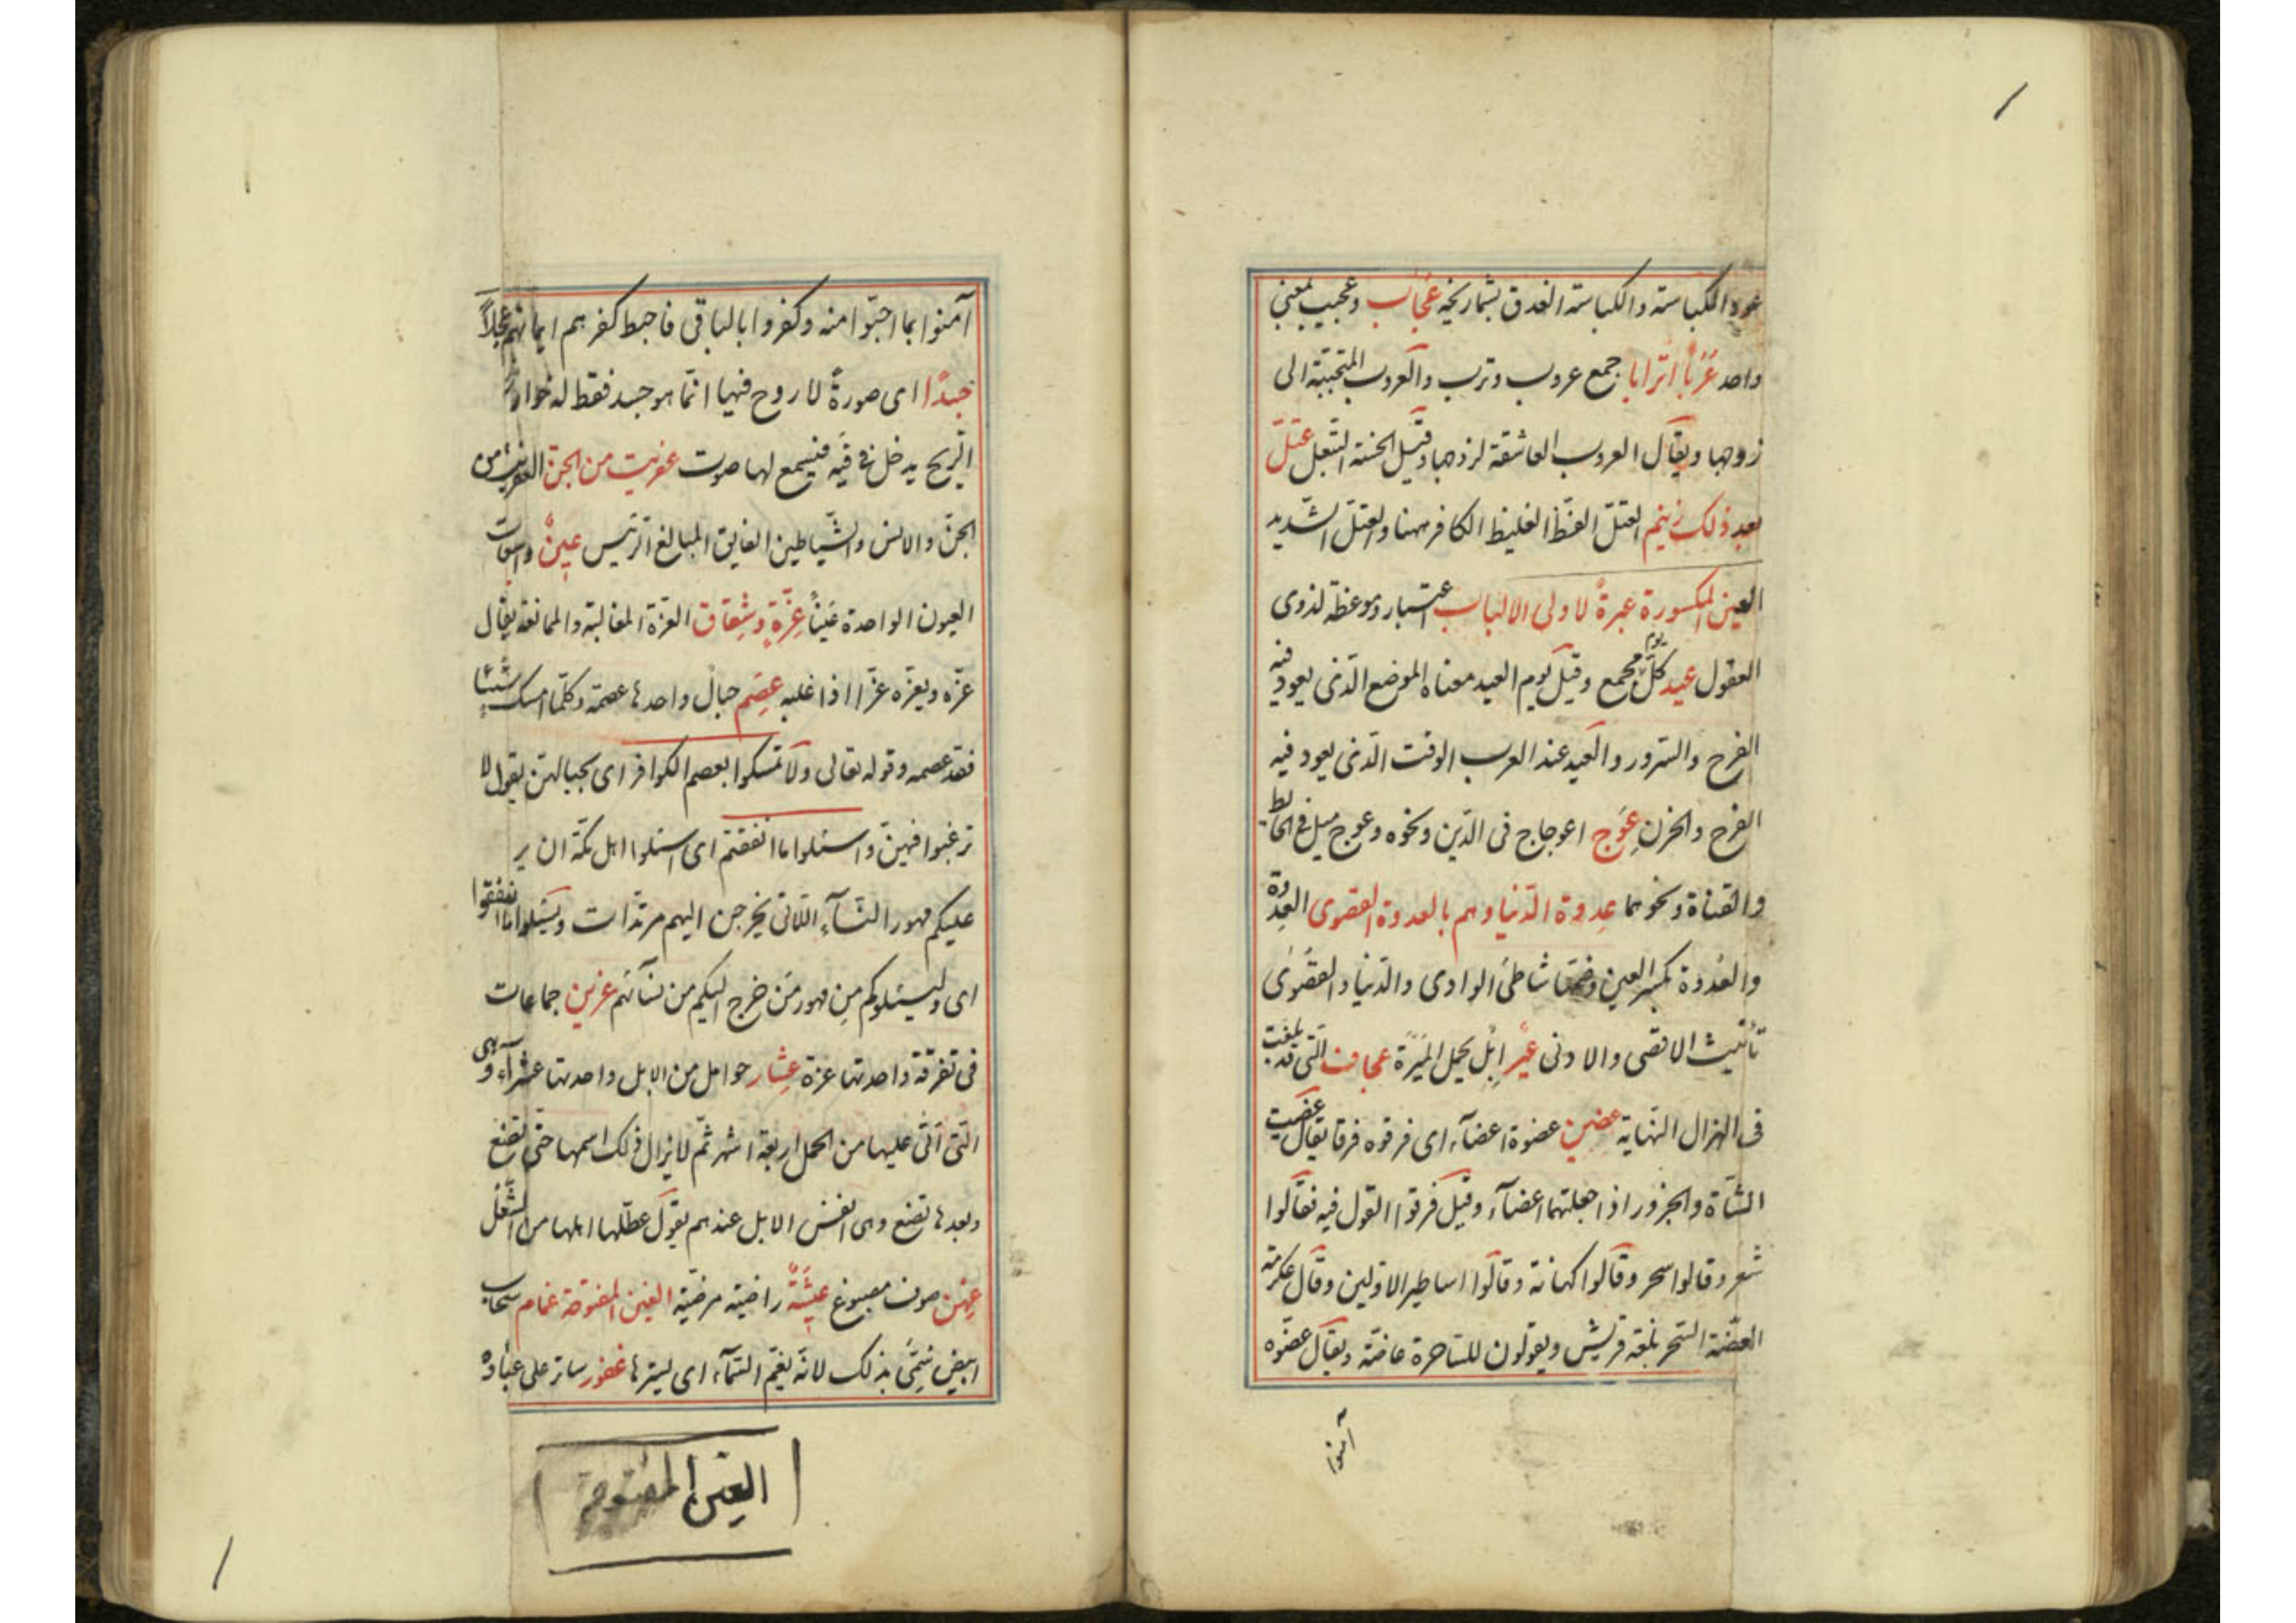 عود الكباسة والكباسة العذق بشماريخه عُجَاب وعجيب بمعنى
واحد عُرُباً اتراباً جمع عروب وترب والعروب المتحببة الى
زوجها ويقال العروب العاشقة لزوجها وقيل الحسنة التبعل عتلّ
بعد ذلك زنيم العتلّ الفظّ الغليظ الكافر ههنا والعتلّ الشّديد
العين المكسورة عبرةً لاولى الالباب اعتبار وموعظة لذوى
العقول عيد كلّ يوم مجمع وقيل يوم العيد معناه الموضع الّذى يعود فيه
الفرح والسّرور والعيد عند العرب الوقت الّذى يعود فيه
الفرح والحزن عِوَج اعوجاج فى الدّين ونحوه وعوج ميل فى الحائط
والقناة ونحوهما عِدوة الدّنيا وهم بالعدوة القصوى العِدوة
والعُدوة بكسر العين وضمّها شاطئ الوادى والدّنيا والقُصْوٰى
تأنيث الاقصى والادنى عيرً ابل يحمل المِيَرَة عجاف الّتى قد بلغت
فى الهزال النّهاية عضين عضوة اعضآء اى فرقوه فرقا يقال عضيت
الشّاة والجزور اذا جعلتهما اعضآء وقيل فرقوا القول فيه فقالوا
شعر وقالوا سحر وقالوا كهانة وقالوا اساطير الاوّلين وقال عكرمة
العضّة السّحر بلغة قريش ويقولون للسّاحرة عاضّة ويقال عضّوه
آمنوا
آمنوا بما احبّوا منه وكفروا بالباقى فاحبط كفرهم ايمانهم عجلاً
جسدًا اى صورةً لا روح فيها انّما هو جسد فقط له خوار
الرّيح يدخل فى فيه فيسمع لها صوت عفريت من الجنّ العفريت من
الجنّ والانس والشّياطين الفايق المبالغ الرّئيس عِينٌ واسعات
العيون الواحدة عَيْناً عِزّةٍ وشِقاق العزّة المغالبة والممانعة يقال
عزّه ويعزّه عزّا اذا غلبه عِصَم حبال واحدها عصمة وكلّما امسك شيئا
فقد عصمه وقوله تعالى ولا تمسكوا بعصم الكوافر اى بحبالهنّ يقول لا
ترغبوا فيهنّ واسئلوا ما انفقتم اى اسئلوا اهل مكّة ان ير
عليكم مهور النّسآء اللّاتى يخرجن اليهم مرتدّات ويسئلوا ما انفقوا
اى وليسئلوكم مِن مهور مَن خرج اليكم من نسآئهم عزين جماعات
فى تفرقة واحدتها عزة عِشار حوامل من الابل واحدتها عشرآء وهى
الّتى اتى عليها من الحمل اربعة اشهر ثمّ لا يزال ذلك اسمها حتّى تضع
وبعدها تضع وهى انفس الابل عندهم يقول عطّلها اهلها من الشّغل
عِهْن صوف مصبوغ عِيشَةً راضية مرضيّة الغين المفتوحة غمام سحاب
ابيض سمّى بذلك لانّه يغمّ السّمآء اى يسترها غفور ساتر على عباده
الغين المفتوحة